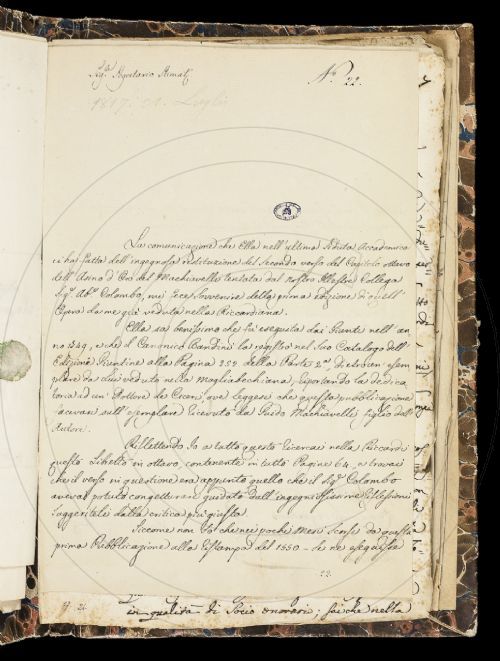 Sig. Segretario Stimat.
N.° 22.
1817. 21. Luglio
La comunicazione che Ella nell'ultima seduta Accademica
ci ha fatta dell'ingegnosa restituzione del secondo verso del Capitolo ottavo
dell'Asino d'Oro del Machiavello tentata dal nostro Illustre Collega
Sig. Ab. Colombo, mi fece sovvenire della prima edizione di quell'
Opera da me già veduta nella Riccardiana.
Ella sa benissimo che fu eseguita dai Giunti nell'an
no 1549, e che il Canonico Bandini la registrò nel suo Catalogo dell'
Edizioni Giuntine alla Pagina 252 della Parte 2.ª, dietro un esem
plare da lui veduto nella Magliabechiana, riportando la dedica
toria ad un Dottore
che questa pubblicazione
facevasi sull'esemplare ricevuto da Guido Machiavelli figlio dell'
Autore.
Riflettendo Io a tutto questo ricercai nella Riccardi
questo Libretto in ottavo, contenente in tutto Pagine 64, e trovai
che il verso in questione era appunto quello che il Sig. Colombo
aveva potuto congetturare guidato dall'ingegnosissime riflessioni
suggeriteli dalla critica più giusta.
Siccome non vi è che nei pochi Mesi scorsi da questa
prima Pubblicazione alla ristampa del 1550 se ne eseguisse
in qualità di Socio onorario; sai che nella